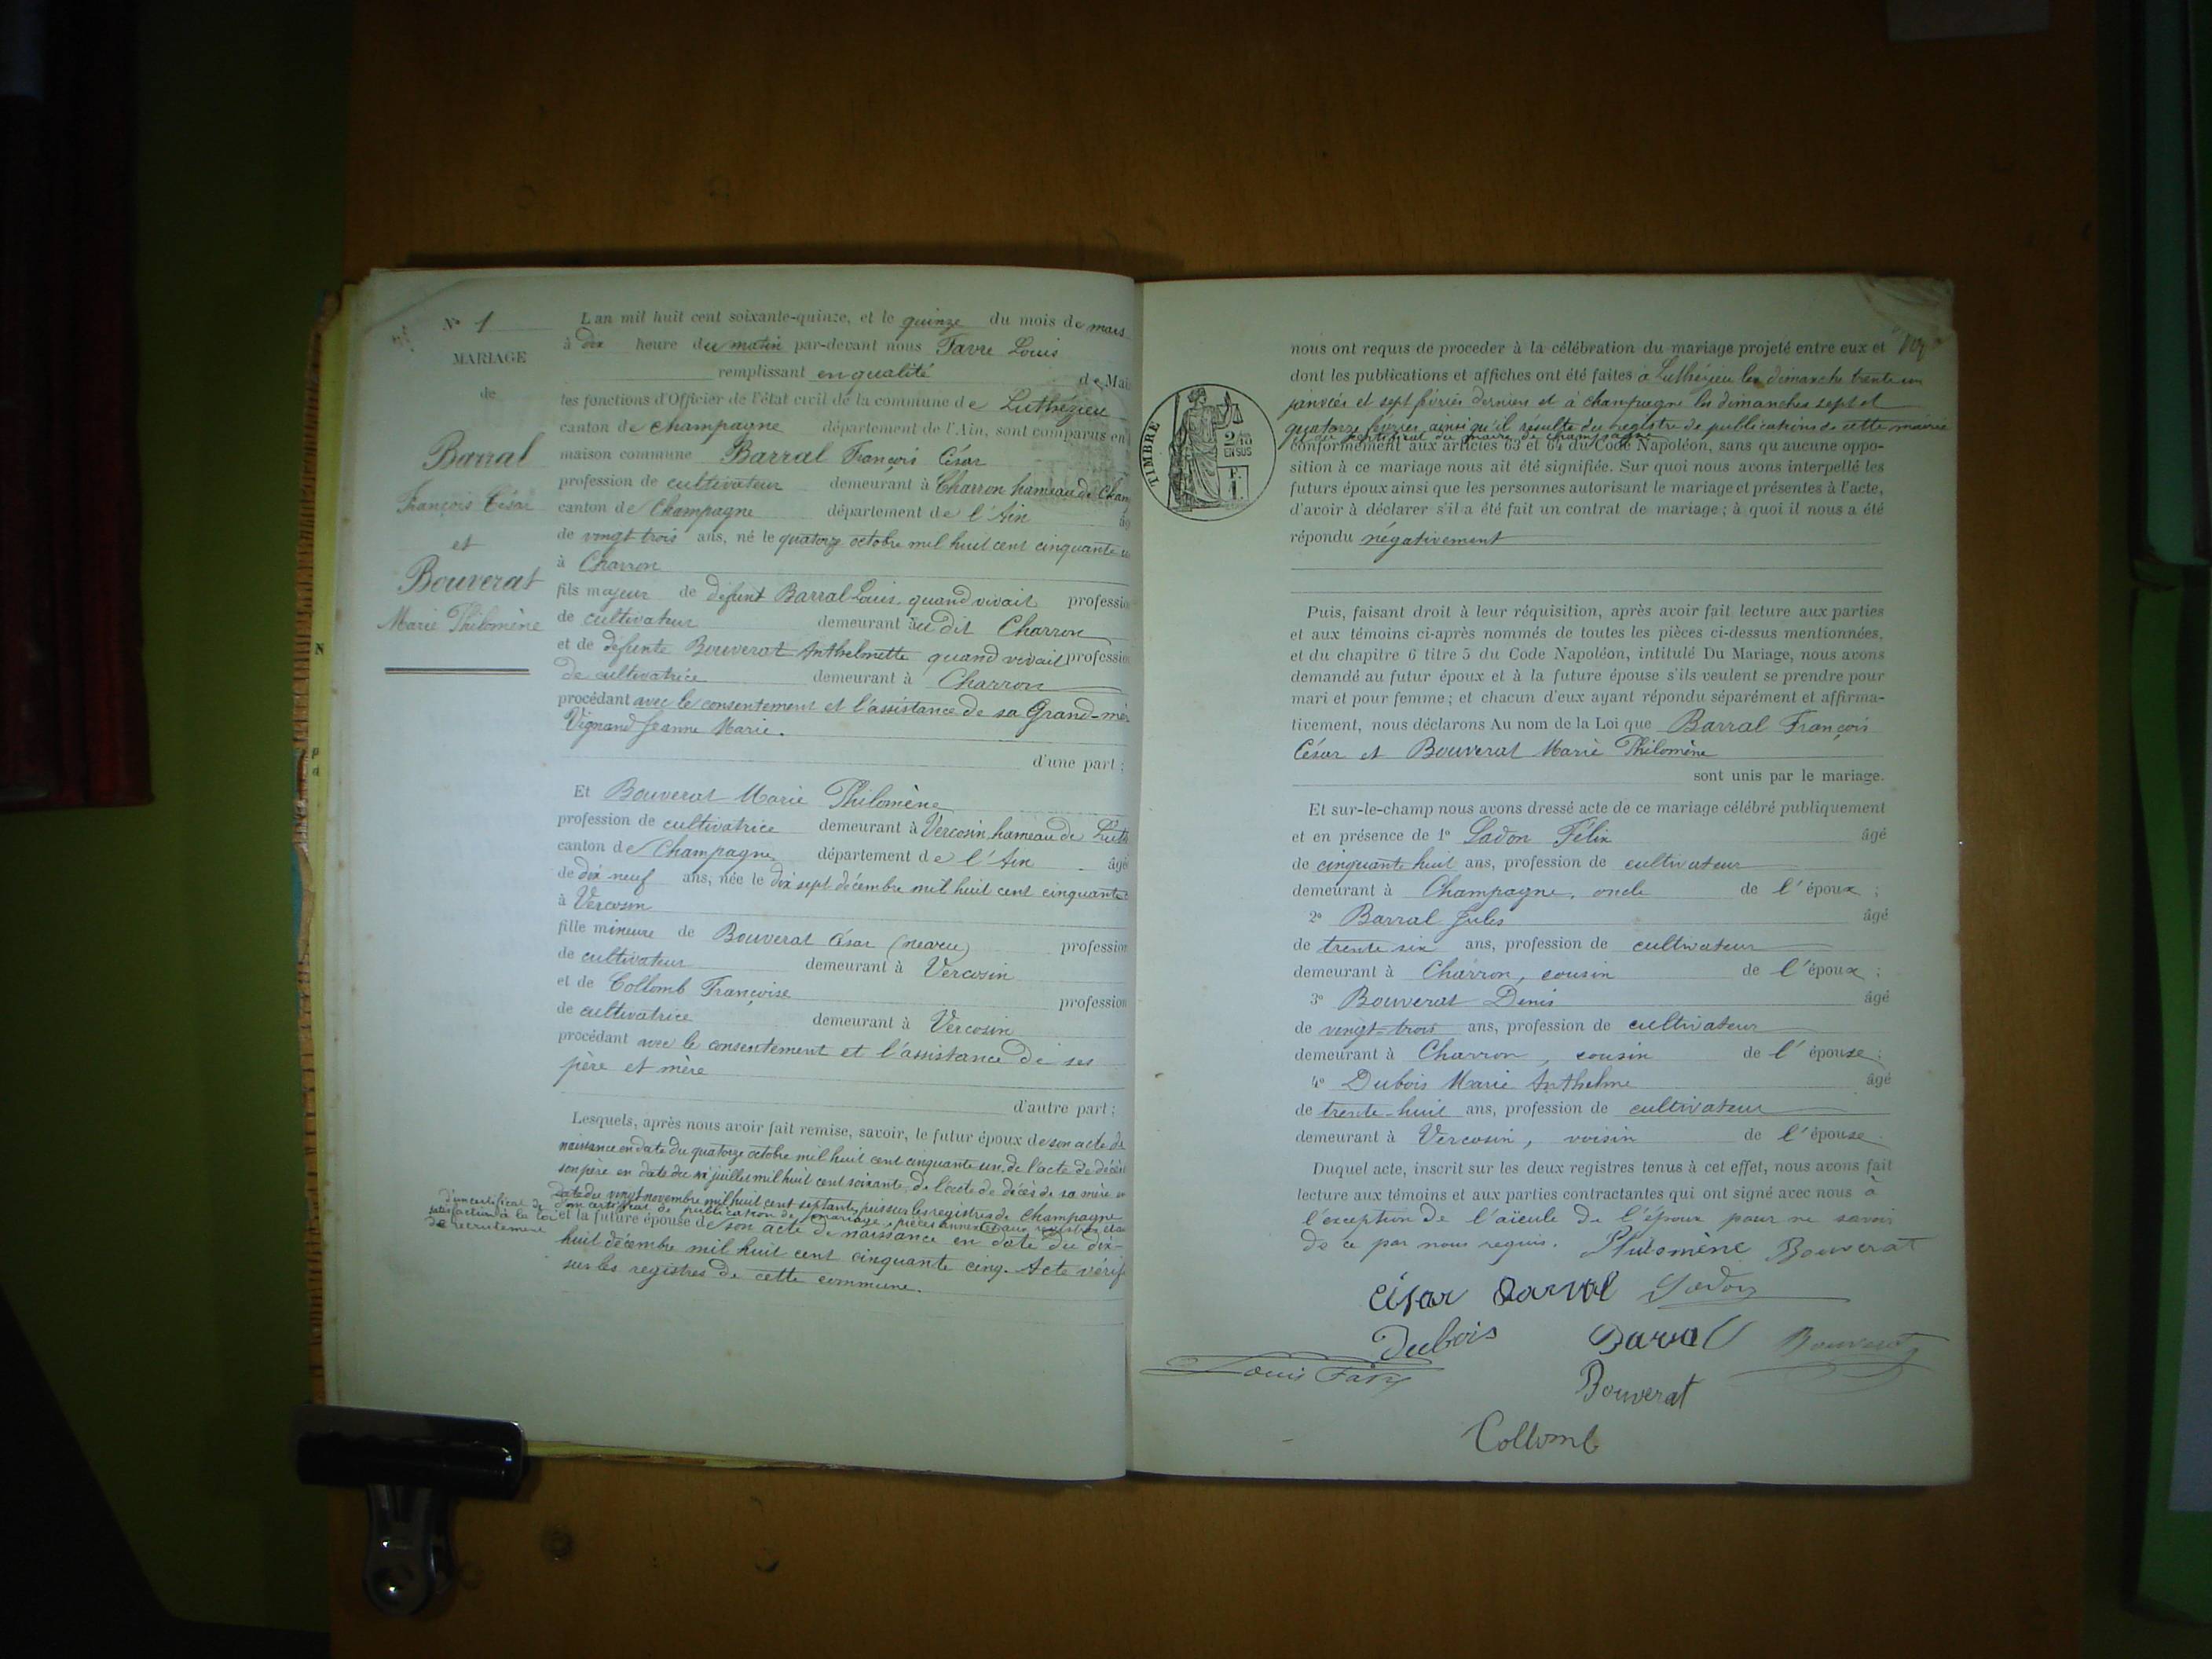 N° 1
MARIAGE
de
Barral
François César
et
Bouverat
Marie Philomène
L'an mil huit cent soixante-quinze, et le quinze du mois de mars
à dix heure du matin par-devant nous Favre Louis
remplissant en qualité de Mai
les fonctions d'Officier de l'état civil de la commune de Luthézieu
canton de Champagne département de l'Ain, sont comparus en
maison commune Barral François César
profession de cultivateur demeurant à Charron hameau de Cham
canton de Champagne département de l'Ain âg
de vingt trois ans, né le quatorze octobre mil huit cent cinquante u
à Charron
fils majeur de défunt Barral Louis quand vivait professio
de cultivateur demeurant au dit Charron
et de défunte Bouverat Anthelmette quand vivait profession
de cultivatrice demeurant à Charron
procédant avec le consentement et l'assistance de sa Grand-mèr
Vignand Jeanne Marie.
d'une part ;
Et Bouverat Marie Philomène
profession de cultivatrice demeurant à Vercosin hameau de Luth
canton de Champagne département de l'Ain âgé
de dix neuf ans, née le dix sept décembre mil huit cent cinquante c
à Vercosin
fille mineure de Bouverat César (neveu) profession
de cultivateur demeurant à Vercosin
et de Collomb Françoise profession
de cultivatrice demeurant à Vercosin
procédant avec le consentement et l'assistance de ses
père et mère
d'autre part ;
Lesquels, après nous avoir fait remise, savoir, le futur époux de son acte de
naissance en date du quatorze octobre mil huit cent cinquante un, de l'acte de décès
son père en date du juillet mil huit cent soixante, de l'acte de décès de sa mère en
date du vingt novembre mil huit cent septante, puis sur les registres de Champagne
d'un certificat de publication de mariage, pièces annexées aux registres
d'un certificat de
satisfaction à la loi
de recrutement
et la future épouse de son acte de naissance en date du dix-
huit décembre mil huit cent cinquante cinq. Acte vérif
sur les registres de cette commune.
nous ont requis de proceder à la célébration du mariage projeté entre eux et
dont les publications et affiches ont été faites à Luthézieu les dimanche trente un
janvier et sept février derniers et à Champagne les dimanches sept et
quatorze février, ainsi qu'il résulte du registre de publications de cette mairie
et du certificat du maire de Champagne
conformément aux articles 63 et 64 du Code Napoléon, sans qu'aucune oppo-
sition à ce mariage nous ait été signifiée. Sur quoi nous avons interpellé les
futurs époux ainsi que les personnes autorisant le mariage et présentes à l'acte,
d'avoir à déclarer s'il a été fait un contrat de mariage ; à quoi il nous a été
répondu négativement
TIMBRE
2/10
EN SUS
F.
1.
Puis, faisant droit à leur réquisition, après avoir fait lecture aux parties
et aux témoins ci-après nommés de toutes les pièces ci-dessus mentionnées,
et du chapitre 6 titre 5 du Code Napoléon, intitulé Du Mariage, nous avons
demandé au futur époux et à la future épouse s'ils veulent se prendre pour
mari et pour femme ; et chacun d'eux ayant répondu séparément et affirma-
tivement, nous déclarons Au nom de la Loi que Barral François
César et Bouverat Marie Philomène
sont unis par le mariage.
Et sur-le-champ nous avons dressé acte de ce mariage célébré publiquement
et en présence de 1° Ladon Félix âgé
de cinquante huit ans, profession de cultivateur
demeurant à Champagne, oncle de l'époux ;
2° Barral Jules âgé
de trente six ans, profession de cultivateur
demeurant à Charron, cousin de l'époux ;
3° Bouverat Denis âgé
de vingt-trois ans, profession de cultivateur
demeurant à Charron, cousin de l'épouse ;
4° Dubois Marie Anthelme âgé
de trente-huit ans, profession de cultivateur
demeurant à Vercosin, voisin de l'épouse.
Duquel acte, inscrit sur les deux registres tenus à cet effet, nous avons fait
lecture aux témoins et aux parties contractantes qui ont signé avec nous à
l'exception de l'aïeule de l'époux pour ne savoir
de ce par nous requis. Philomène Bouverat
César Barral Ladon
Dubois Barral Bouverat
Louis Favre
Bouverat
Collomb